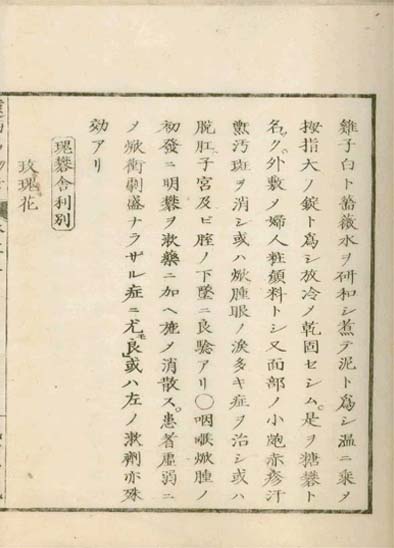 雞子白ト薔薇水ヲ研和シ煮テ泥ト爲シ温ニ乘ヲ
按指大ノ錠ト爲シ放冷ノ乾固セシム。是ヲ糖礬ト
名ク。外敷ノ婦人粧顔料トシ又面部ノ小皰赤疹汗
斑ヲ消シ或ハ焮腫眼ノ淚多キ症ヲ治シ或ハ
脱肛子宮及ビ膣ノ下墜ニ良驗アリ〇咽喉焮腫ノ
初發ニ明礬ヲ漱藥ニ加ヘ施ノ消散ス。患者虚弱ニ
ノ焮衝劇盛ナラザル症ニ尤モ良或ハ左ノ漱劑亦殊
効アリ
瑰礬舎利別
玫瑰花